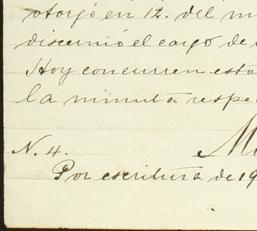 otorgó en 12. del m
discernió el cargo de
Hoy concurren esta
la minuta respe
N. 4.
Por escritura de 19